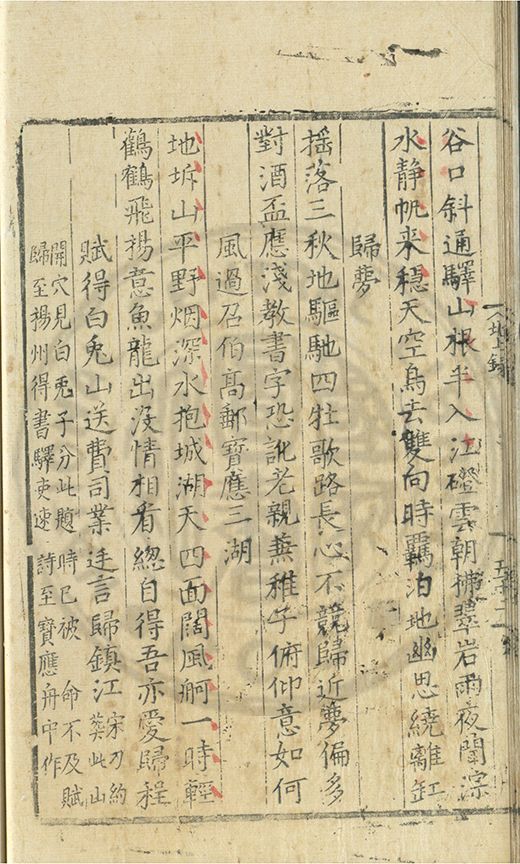 北上錄
谷口斜通驛山根半入江磴雲朝拂翠岩雨夜聞淙
水静帆来穩天空鳥去雙向時羈泊地幽思繞離缸
歸夢
揺落三秋地驅馳四牡歌路長心不競歸近夢偏多
對酒盃應淺教書字恐訛老親兼稚子俯仰意如何
風過召伯髙郵寶應三湖
地坼山平野烟深水抱城湖天四面闊風舸一時輕
鸛鶴飛揚意魚龍出没情相看總自得吾亦愛歸程
賦得白兎山送費司業廷言歸鎮江
宋刁約
葬此山
開穴見白兎子分此題時已被 命不及賦
歸至揚州得書驛吏速詩至寶應舟中作